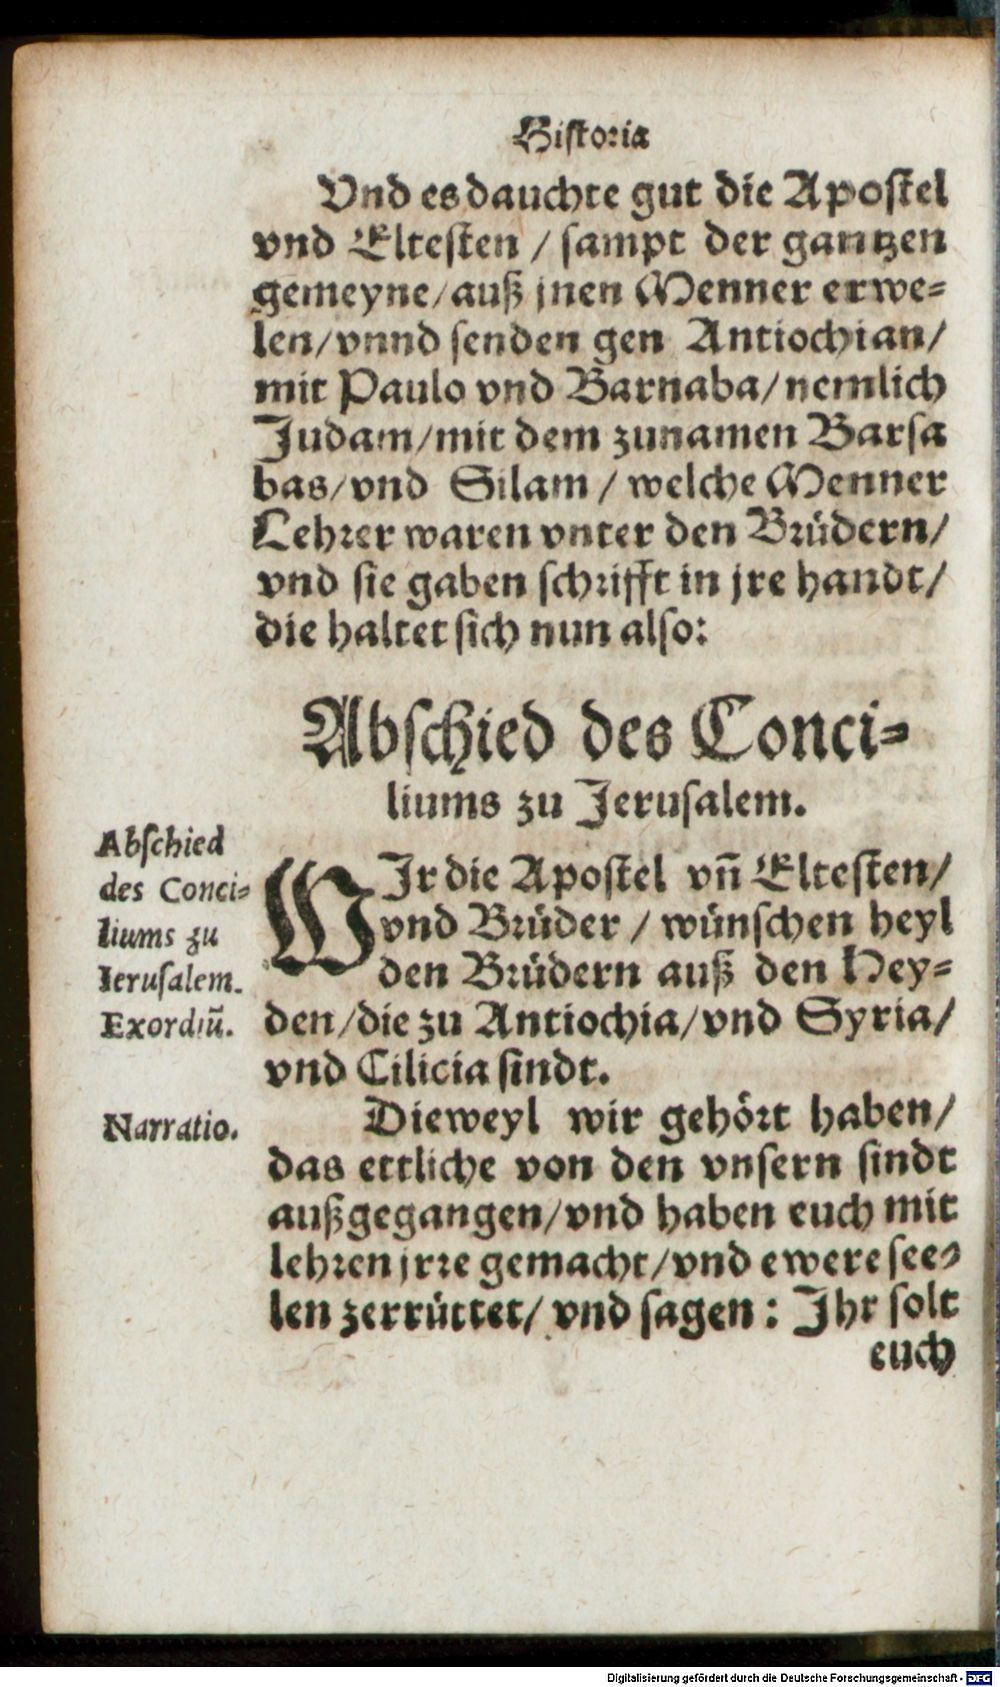 Historia
Vnd es dauchte gut die Apostel
vnd Eltesten / sampt der gantzen
gemeyne/auß jnen Menner erwe-
len/vnnd senden gen Antiochian/
mit Paulo vnd Barnaba/nemlich
Judam/mit dem zunamen Barsa
bas/vnd Silam / welche Menner
Lehrer waren vnter den Brüdern/
vnd sie gaben schrifft in jre handt/
die haltet sich nun also:
Abschied des Conci-
liums zu Jerusalem.
Abschied
des Conci-
liums zu
Ierusalem.
Exordiũ.
WIr die Apostel vñ Eltesten/
vnd Brüder / wünschen heyl
den Brüdern auß den Hey-
den/die zu Antiochia/vnd Syria/
vnd Cilicia sindt.
Narratio.
Dieweyl wir gehört haben/
das ettliche von den vnsern sindt
außgegangen/vnd haben euch mit
lehren jrre gemacht/vnd ewere see-
len zerrüttet/ vnd sagen: Ihr solt
euch
Digitalisierung gefördert durch die Deutsche Forschungsgemeinschaft - DFG